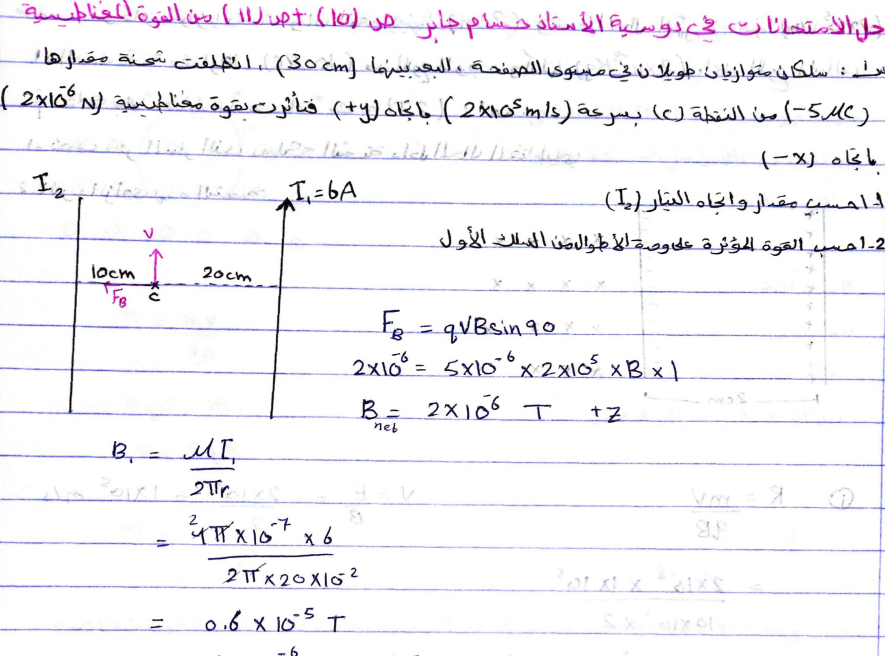 حل الامتحانات في دوسية الأستاذ حسام جابر ص (10) + ص (11) من القوة المغناطيسية
س1 : سلكان متوازيان طويلان في مستوى الصفحة ، البعد بينهما (30 cm) ، انطلقت شحنة مقدارها
(-5 μC) من النقطة (c) بسرعة (2x10⁵ m/s) باتجاه (+y) فتأثرت بقوة مغناطيسية (2x10⁻⁶ N)
باتجاه (-x)
1- احسب مقدار واتجاه التيار (I₂)
2- احسب القوة المؤثرة على وحدة الأطوال من السلك الأول
I₂
I₁ = 6A
V
10cm
20cm
F_B
c
F_B = qVBsin90
2x10⁻⁶ = 5x10⁻⁶ x 2x10⁵ x B x 1
B_net = 2x10⁻⁶ T +z
B₁ = μI₁
2πr
= ²4π x 10⁻⁷ x 6
2π x 20 x 10⁻²
= 0.6 x 10⁻⁵ T